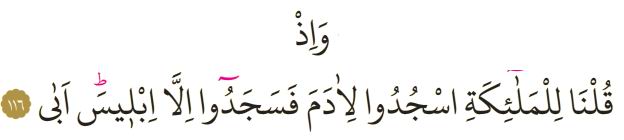 وَاِذْ
قُلْنَا لِلْمَلٰٓئِكَةِ اسْجُدُوا لِاٰدَمَ فَسَجَدُٓوا اِلَّٓا اِبْل۪يسَۜ اَبٰى ﴿١١٦﴾